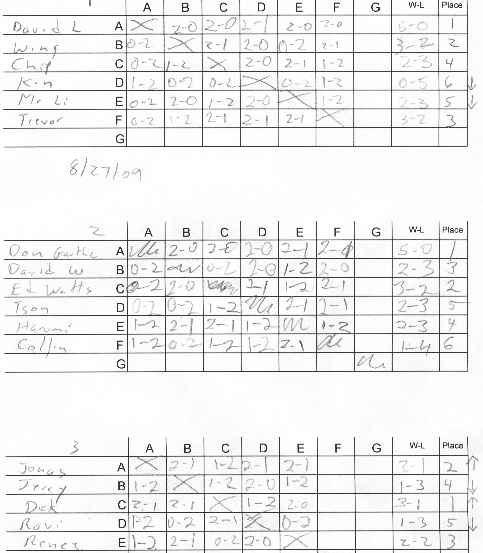 1
A B C D E F G W-L Place
David L A 2-0 2-0 2-1 2-0 2-0 5-0 1
Wing B 0-2 2-1 2-0 0-2 2-1 3-2 2
Chip C 0-2 1-2 2-0 2-1 1-2 2-3 4
Kin D 1-2 0-2 0-2 0-2 1-2 0-5 6 ↓
Mr Li E 0-2 2-0 1-2 2-0 1-2 2-3 5 ↓
Trevor F 0-2 1-2 2-1 2-1 2-1 3-2 3
G
8/27/09
2
A B C D E F G W-L Place
Don A 2-0 2-0 2-0 2-1 2-0 5-0 1
David W B 0-2 0-2 2-0 1-2 2-0 2-3 3
Ed Watts C 0-2 2-0 2-1 1-2 2-1 3-2 2
Tson D 0-2 0-2 1-2 2-1 2-1 2-3 5
Harumi E 1-2 2-1 2-1 1-2 1-2 2-3 4
Collin F 1-2 0-2 1-2 1-2 2-1 1-4 6
G
3
A B C D E F G W-L Place
Jonas A 2-1 1-2 2-1 2-1 2-1 2 ↑
Jerry B 1-2 1-2 2-0 1-2 1-3 4 ↓
Dick C 2-1 2-1 1-2 2-0 3-1 1 ↑
Ravi D 1-2 0-2 2-1 0-2 1-3 5 ↓
Renee E 1-2 2-1 0-2 2-0 2-2 3